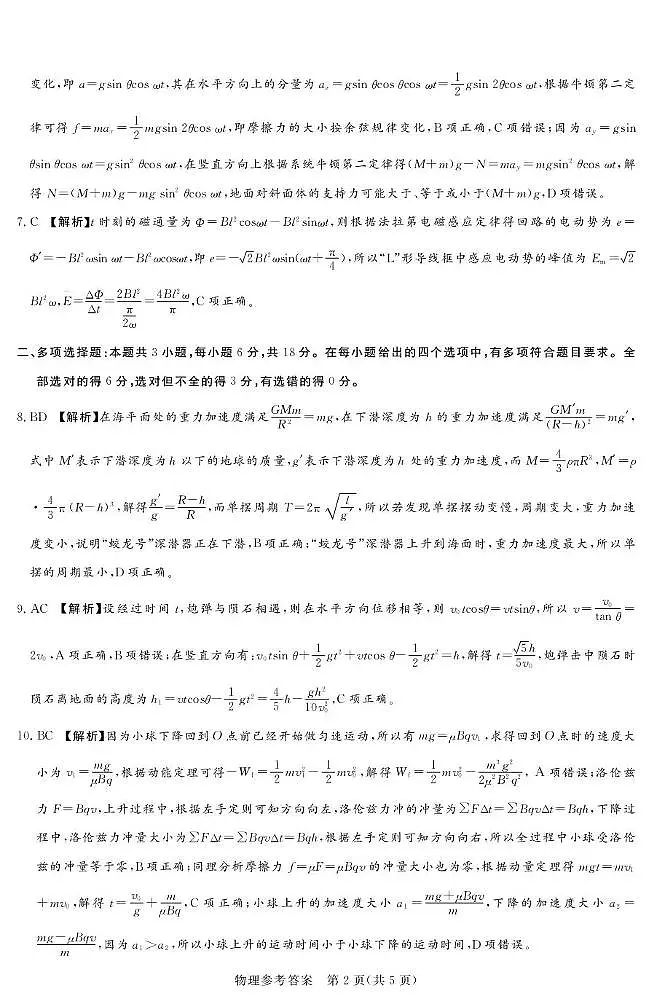 变化,即 a=gsin θcos ωt,其在水平方向上的分量为 aₓ=gsin θcos θcos ωt=1/2 gsin 2θcos ωt,根据牛顿第二定
律可得 f=maₓ=1/2 mgsin 2θcos ωt,即摩擦力的大小按余弦规律变化,B 项正确,C 项错误;因为 a_y=gsin
θsin θcos ωt=gsin² θcos ωt,在竖直方向上根据系统牛顿第二定律得(M+m)g-N=ma_y=mgsin² θcos ωt,解
得 N=(M+m)g-mg sin² θcos ωt,地面对斜面体的支持力可能大于、等于或小于(M+m)g,D 项错误。
7. C 【解析】t 时刻的磁通量为 Φ=Bl²cosωt-Bl²sinωt,则根据法拉第电磁感应定律得回路的电动势为 e=
Φ′=-Bl²ωsin ωt-Bl²ωcosωt,即 e=-√2Bl²ωsin(ωt+π/4),所以“L”形导线框中感应电动势的峰值为 Eₘ=√2
Bl²ω,E̅=ΔΦ/Δt=2Bl²/(π/2ω)=4Bl²ω/π,C 项正确。
二、多项选择题:本题共 3 小题,每小题 6 分,共 18 分。在每小题给出的四个选项中,有多项符合题目要求。全
部选对的得 6 分,选对但不全的得 3 分,有选错的得 0 分。
8. BD 【解析】在海平面处的重力加速度满足 GMm/R²=mg,在下潜深度为 h 的重力加速度满足 GM′m/(R-h)²=mg′,
式中 M′表示下潜深度为 h 以下的地球的质量,g′表示下潜深度为 h 处的重力加速度,而 M=4/3 ρπR³,M′=ρ
·4/3 π(R-h)³,解得 g′/g=(R-h)/R,而单摆周期 T=2π√(l/g′),所以若发现单摆摆动变慢,周期变大,重力加速
度变小,说明“蛟龙号”深潜器正在下潜,B 项正确;“蛟龙号”深潜器上升到海面时,重力加速度最大,所以单
摆的周期最小,D 项正确。
9. AC 【解析】设经过时间 t,炮弹与陨石相遇,则在水平方向位移相等,则 v₀tcosθ=vtsinθ,所以 v=v₀/tan θ=
2v₀,A 项正确,B 项错误;在竖直方向有:v₀tsin θ+1/2 gt²+vtcos θ-1/2 gt²=h,解得 t=√5h/5v₀,炮弹击中陨石时
陨石离地面的高度为 h₁=vtcosθ-1/2 gt²=4/5 h-gh²/10v₀²,C 项正确。
10. BC 【解析】因为小球下降回到 O 点前已经开始做匀速运动,所以有 mg=μBqv₁,求得回到 O 点时的速度大
小为 v₁=mg/μBq,根据动能定理可得-W_f=1/2 mv₁²-1/2 mv₀²,解得 W_f=1/2 mv₀²-m³g²/2μ²B²q²,A 项错误;洛伦兹
力 F=Bqv,上升过程中,根据左手定则可知方向向左,洛伦兹力冲的冲量为∑FΔt=∑BqvΔt=Bqh,下降过
程中,洛伦兹力冲量大小为∑FΔt=∑BqvΔt=Bqh,根据左手定则可知方向向右,所以全过程中小球受洛伦
兹的冲量等于零,B 项正确;同理分析摩擦力 f=μF=μBqv 的冲量大小也为零,根据动量定理得 mgt=mv₁
+mv₀,解得 t=v₀/g+m/μBq,C 项正确;小球上升的加速度大小 a₁=(mg+μBqv)/m,下降的加速度大小 a₂=
(mg-μBqv)/m,因为 a₁>a₂,所以小球上升的运动时间小于小球下降的运动时间,D 项错误。
物理参考答案 第 2 页(共 5 页)